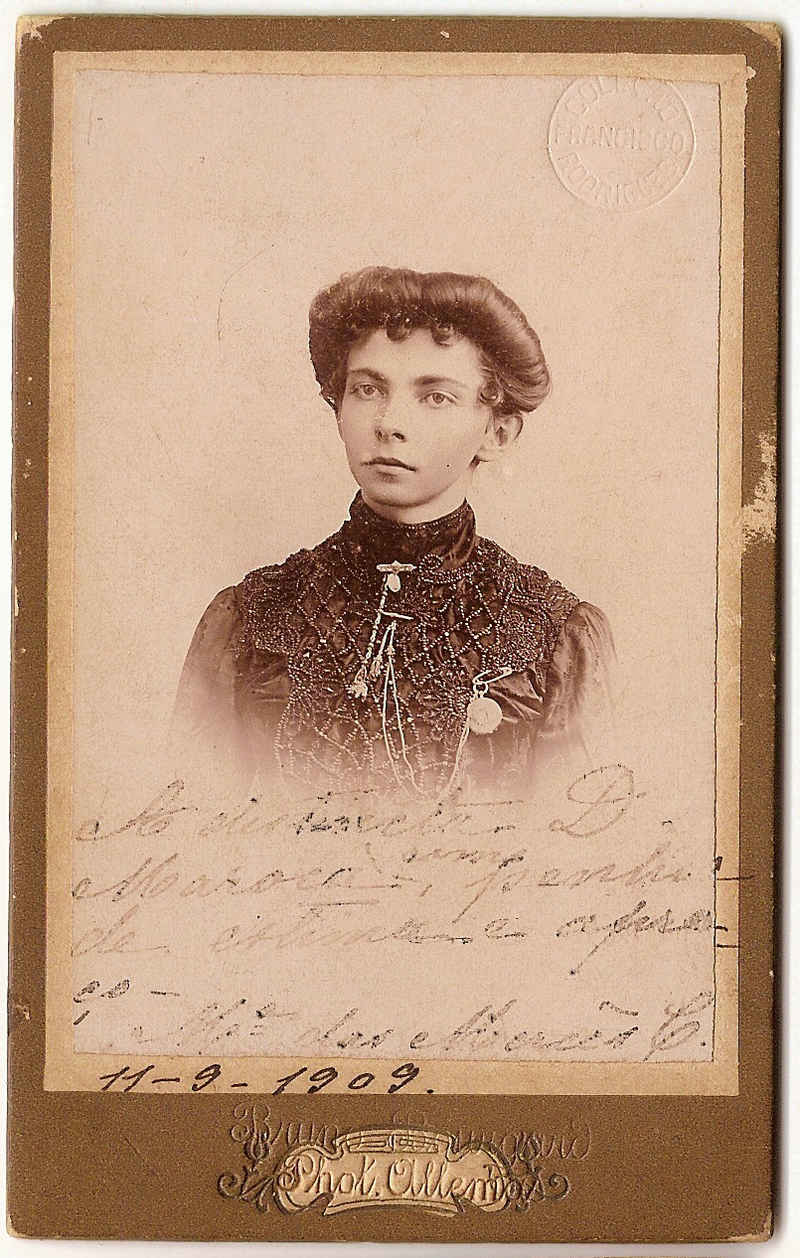 COLEÇÃO
FRANCISCO
RODRIGUES
A distincta D.
Maroca, penhor
de estima e apre
ço
Mª das Mercês C.
11-9-1909.
Phot. Allemã